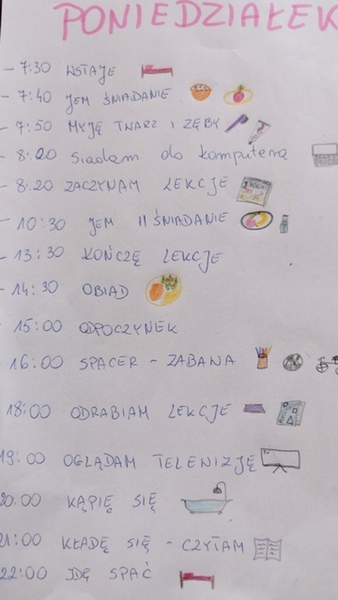 PONIEDZIAŁEK
- 7:30 WSTAJĘ
- 7:40 JEM ŚNIADANIE
- 7:50 MYJĘ TWARZ I ZĘBY
- 8:20 Siadam do komputera
- 8:20 ZACZYNAM LEKCJE
- 10:30 JEM II ŚNIADANIE
- 13:30 KOŃCZĘ LEKCJE
- 14:30 OBIAD
- 15:00 ODPOCZYNEK
- 16:00 SPACER - ZABAWA
18:00 ODRABIAM LEKCJE
19:00 OGLĄDAM TELEWIZJĘ
20.00 KĄPIĘ SIĘ
21:00 KŁADĘ SIĘ - CZYTAM
22:00 IDĘ SPAĆ